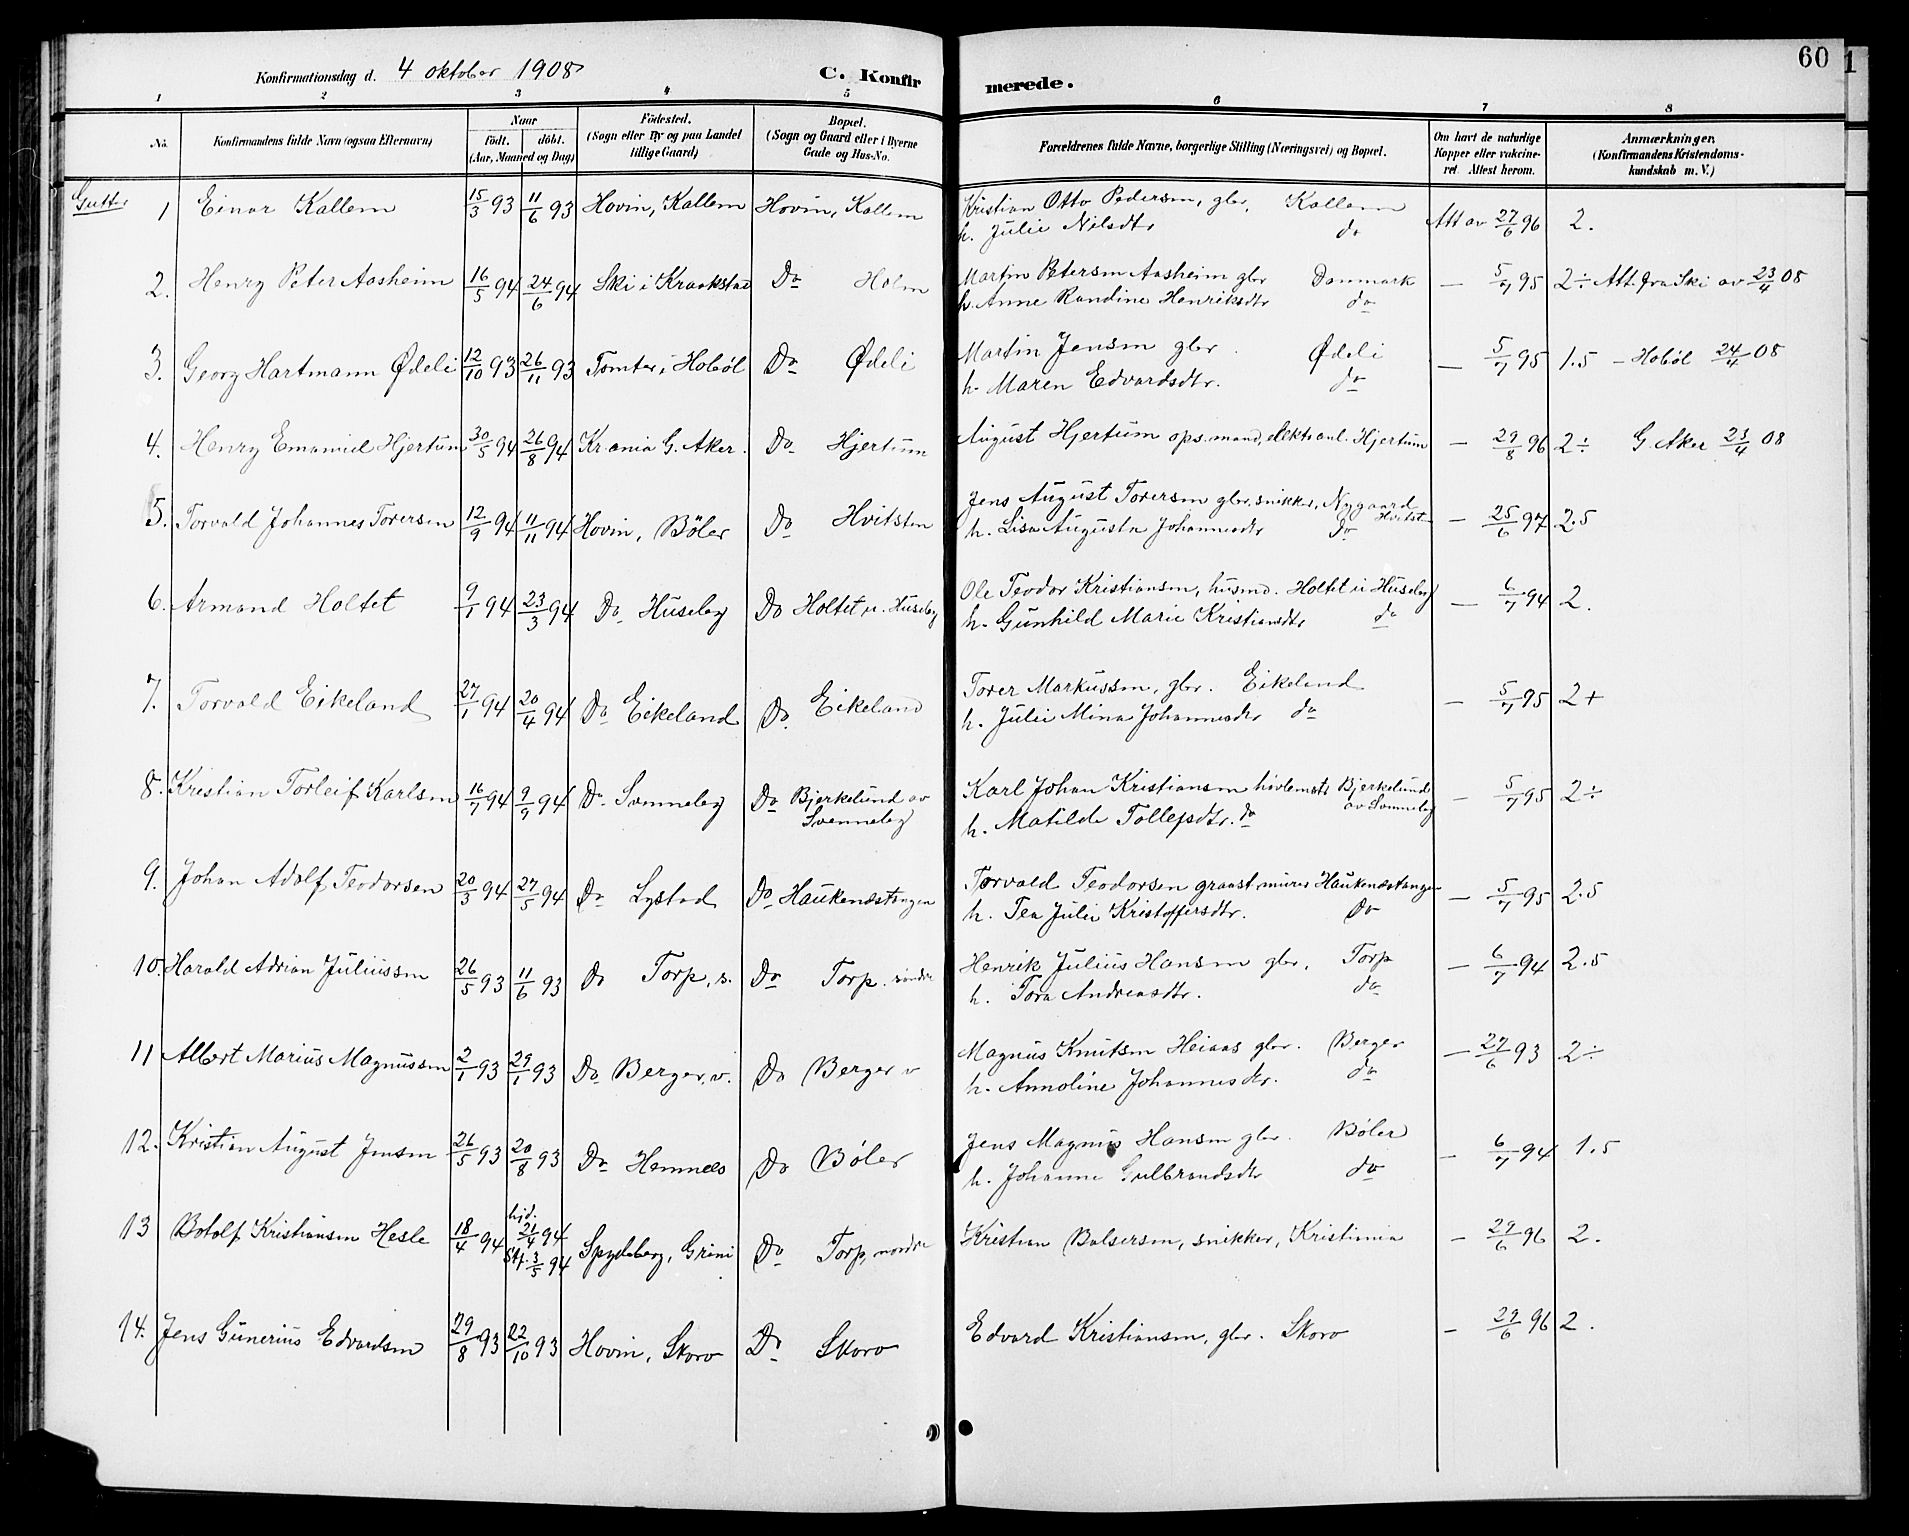 60
1
Konfirmationsdag d. 4 oktober 1908
C. Konfir merede.
1 2 3 4 5 6 7 8
No. Konfirmandens fulde Navn (ogsaa Efternavn) Naar födt. döbt. (Aar, Maaned og Dag) Födested. (Sogn eller By og paa Landet tillige Gaard) Bopæl. (Sogn og Gaard eller i Byerne Gade og Hus-No. Forældrenes fulde Navne, borgerlige Stilling (Næringsvei) og Bopæl. Om havt de naturlige Kopper eller vakcineret. Attest herom. Anmærkninger, (Konfirmandens Kristendomskundskab m. V.)
Gutter
1 Einar Kallem 15/3 93 11/6 93 Hovin, Kallem Hovin, Kallem Kristian Otto Pedersen, gbr, Kallem Att av 27/6 96 2.
h. Julie Nilsdtr do
2. Henry Peter Aasheim 16/5 94 24/6 94 Ski i Kraakstad Do Holm Martin Petersen Aasheim gbr Danmark — 5/7 95 2÷ Att. fra Ski av 23/4 08
h. Anne Randine Henriksdtr do
3. Georg Hartmann Ødeli 12/10 93 26/11 93 Tomter i Hobøl Do Ødeli Martin Jensen gbr. Ødeli — 5/7 95 1.5 – Hobøl 24/4 08
h. Maren Edvardsdtr. do
4. Henry Emanuel Hjertum 30/5 94 26/8 94 Kr.ania G. Aker. Do Hjertum August Hjertum ops.mand, elektr.anl. Hjertum — 29/8 96 2÷ G. Aker 23/4 08
5. Torvald Johannes Torersen 12/9 94 11/11 94 Hovin, Böler Do Hvitsten Jens August Torersen gbr, snikker, Nygaard Hvitst — 25/6 97 2.5
h. Lisa Augusta Johannesdtr do
6. Armand Holtet 9/1 94 23/3 94 Do Huseby Do Holtet u. Huseby Ole Teodor Kristiansen, husmd. Holtet u Huseby — 6/7 94 2.
h. Gunhild Marie Kristiansdtr do
7. Torvald Eikeland 27/1 94 20/4 94 Do Eikeland Do. Eikeland Torer Markussen, gbr. Eikeland — 5/7 95 2+
h. Julie Mina Johannesdtr do
8. Kristian Torleif Karlsen 16/7 94 9/9 94 Do. Svenneby Do Bjerkelund av Svenneby Karl Johan Kristiansen høvlemstr Bjerkelund av Svenneby — 5/7 95 2÷
h. Matilde Tollefsdtr. do
9. Johan Adolf Teodorsen 20/3 94 27/5 94 Do Lystad Do Haukenæstangen Torvald Teodorsen graast.murer Haukenæstangen — 5/7 95 2.5
h. Tea Julie Kristoffersdtr. Do
10. Harald Adrian Juliussen 26/5 93 11/6 93 Do Torp, s. Do Torp. söndre Henrik Julius Hansen gbr, Torp — 6/7 94 2.5
h. Tora Andreasdtr. do
11 Albert Marius Magnussen 2/1 93 29/1 93 Do Berger, v. Do Berger v Magnus Knutsen Heiaas gbr. Berger — 27/6 93 2÷
h. Annoline Johannesdtr. do
12. Kristian August Jensen 26/5 93 20/8 93 Do Hemnes Do Bøler Jens Magnus Hansen gbr. Bøler — 6/7 94 1.5
h. Johanne Gulbrandsdtr do
13 Botolf Kristiansen Hesle 18/4 94 hjd. 21/4 94 Stf. 3/5 94 Spydeberg, Grini Do Torp, nordre Kristian Balsersen, snikker, Kristiania — 29/6 96 2.
14. Jens Gunerius Edvardsen 29/8 93 22/10 93 Hovin, Skoro Do Skoro Edvard Kristiansen, gbr. Skoro — 29/6 96 2.